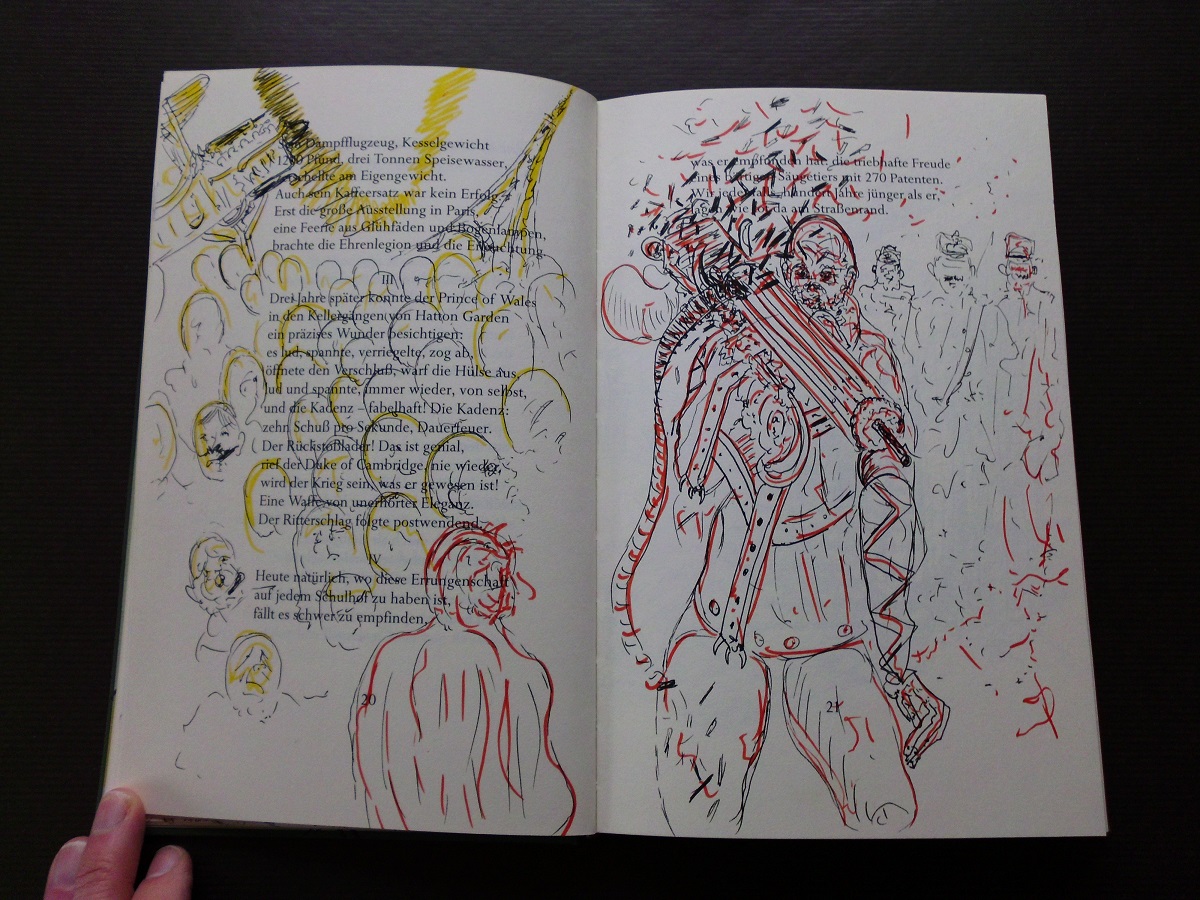 Dampfflugzeug, Kesselgewicht
1200 Pfund, drei Tonnen Speisewasser,
am Eigengewicht.
Auch sein Kaffeersatz war kein Erfolg.
Erst die große Ausstellung in Paris,
eine Feerie aus Glühfäden und Bogenlampen,
brachte die Ehrenlegion und die Erleuchtung.
III
Drei Jahre später konnte der Prince of Wales
in den Kellergängen von Hatton Garden
ein präzises Wunder besichtigen:
es lud, spannte, verriegelte, zog ab,
öffnete den Verschluß, warf die Hülse aus,
lud und spannte, immer wieder, von selbst,
und die Kadenz – fabelhaft! Die Kadenz:
zehn Schuß pro Sekunde, Dauerfeuer.
Der Rückstoßlader! Das ist genial,
rief der Duke of Cambridge, nie wieder
wird der Krieg sein, was er gewesen ist!
Eine Waffe von unerhörter Eleganz.
Der Ritterschlag folgte postwendend.
IV
Heute natürlich, wo diese Errungenschaft
auf jedem Schulhof zu haben ist,
fällt es schwer zu empfinden,
20
was er empfunden hat: die triebhafte Freude
eines bärtigen Säugetiers mit 270 Patenten.
Wir jedenfalls, hundert Jahre jünger als er,
lagen wie tot da am Straßenrand.
21